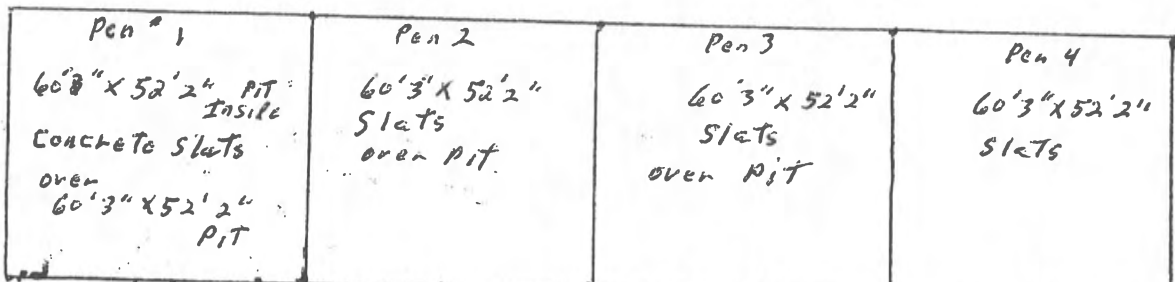 Pen # 1
60'3" X 52'2" PIT
Inside
Concrete Slats
over
60'3" X 52'2"
PIT
Pen 2
60'3" X 52'2"
Slats
over Pit
Pen 3
60'3" X 52'2"
Slats
over Pit
Pen 4
60'3" X 52'2"
Slats